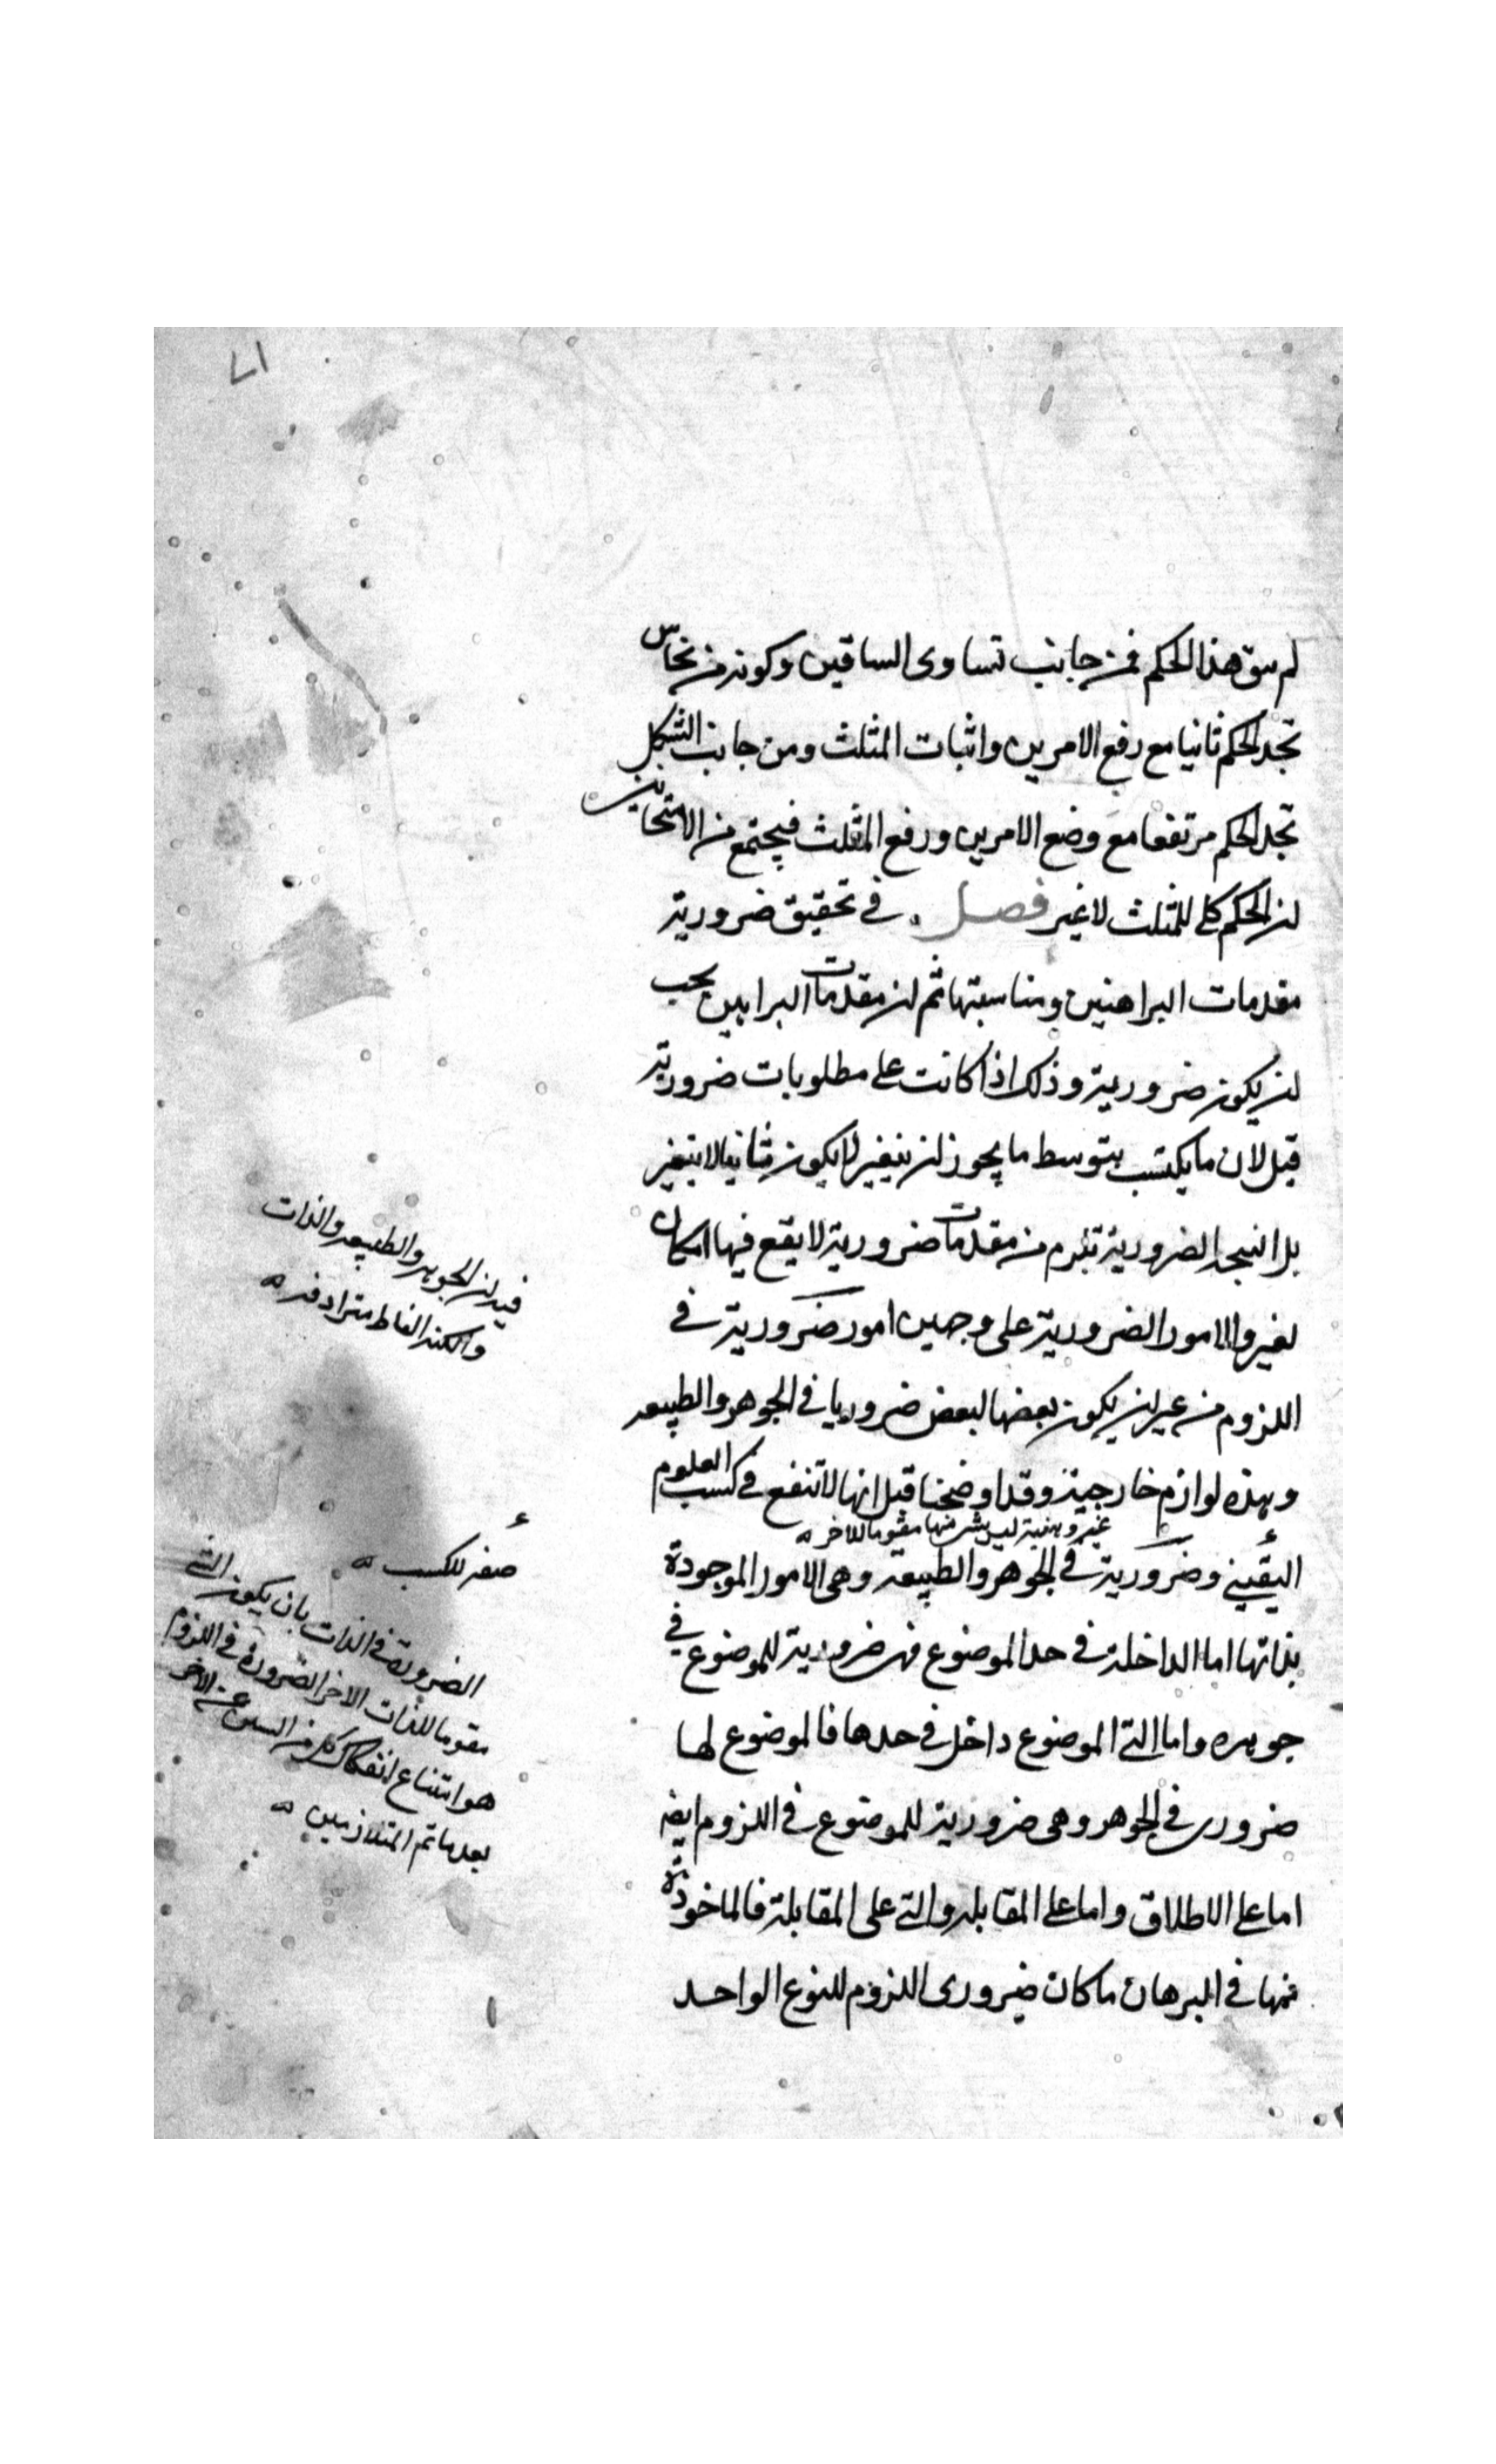 ٧١
لم يبق هذا الحكم فمن جانب تساوى الساقين وكونه من نحاس
تجد الحكم ثانيا مع رفع الامرين واثبات المثلث ومن جانب الشكل
تجد الحكم مرتفعا مع وضع الامرين ورفع المثلث فيجتمع من الامتحانين
ان الحكم كلى للمثلث لا غير فصل في تحقيق ضرورية
مقدمات البراهين ومناسبتها ثم ان مقدمات البراهين يجب
ان يكون ضرورية وذلك اذا كانت على مطلوبات ضرورية
قيل لان ما يكتسب بتوسط ما يجوز ان يتغير لا يكون ثابتا لا يتغير
بل النتيجة الضرورية تلزم من مقدمات ضرورية لا يقع فيها امكان
لغير والامور الضرورية على وجهين امور ضرورية في
اللزوم من غير ان يكون بعضها لبعض ضروريا في الجوهر والطبيعه
وهذه لوازم خارجية وقد اوضحنا قبل انها لا تنفع في كسب العلوم
غير ليس منها مقوما للاخر
اليقيني وضرورية في الجوهر والطبيعه وهى الامور الموجودة
بذاتها اما الداخلة في حد الموضوع فهى ضرورية للموضوع في
جوهره واما التى الموضوع داخل في حدها فالموضوع لها
ضرورى في الجوهر وهى ضرورية للموضوع في اللزوم ايضا
اما على الاطلاق واما على المقابلة والتى على المقابلة فالماخوذة
منها في البرهان ما كان ضرورى اللزوم للنوع الواحد
فيه ان الجوهر والطبيعه والذات
والكنه الفاظ مترادفه
صفة للكسب
الضرورة في الذات بان يكون الشئ
مقوما للذات الاخر الضرورة في اللزوم
هو امتناع انفكاك كل من عن الاخر
المتلازمين